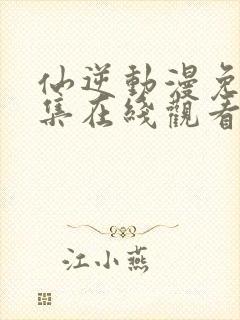 仙逆動漫免
集在綫觀看
江小燕